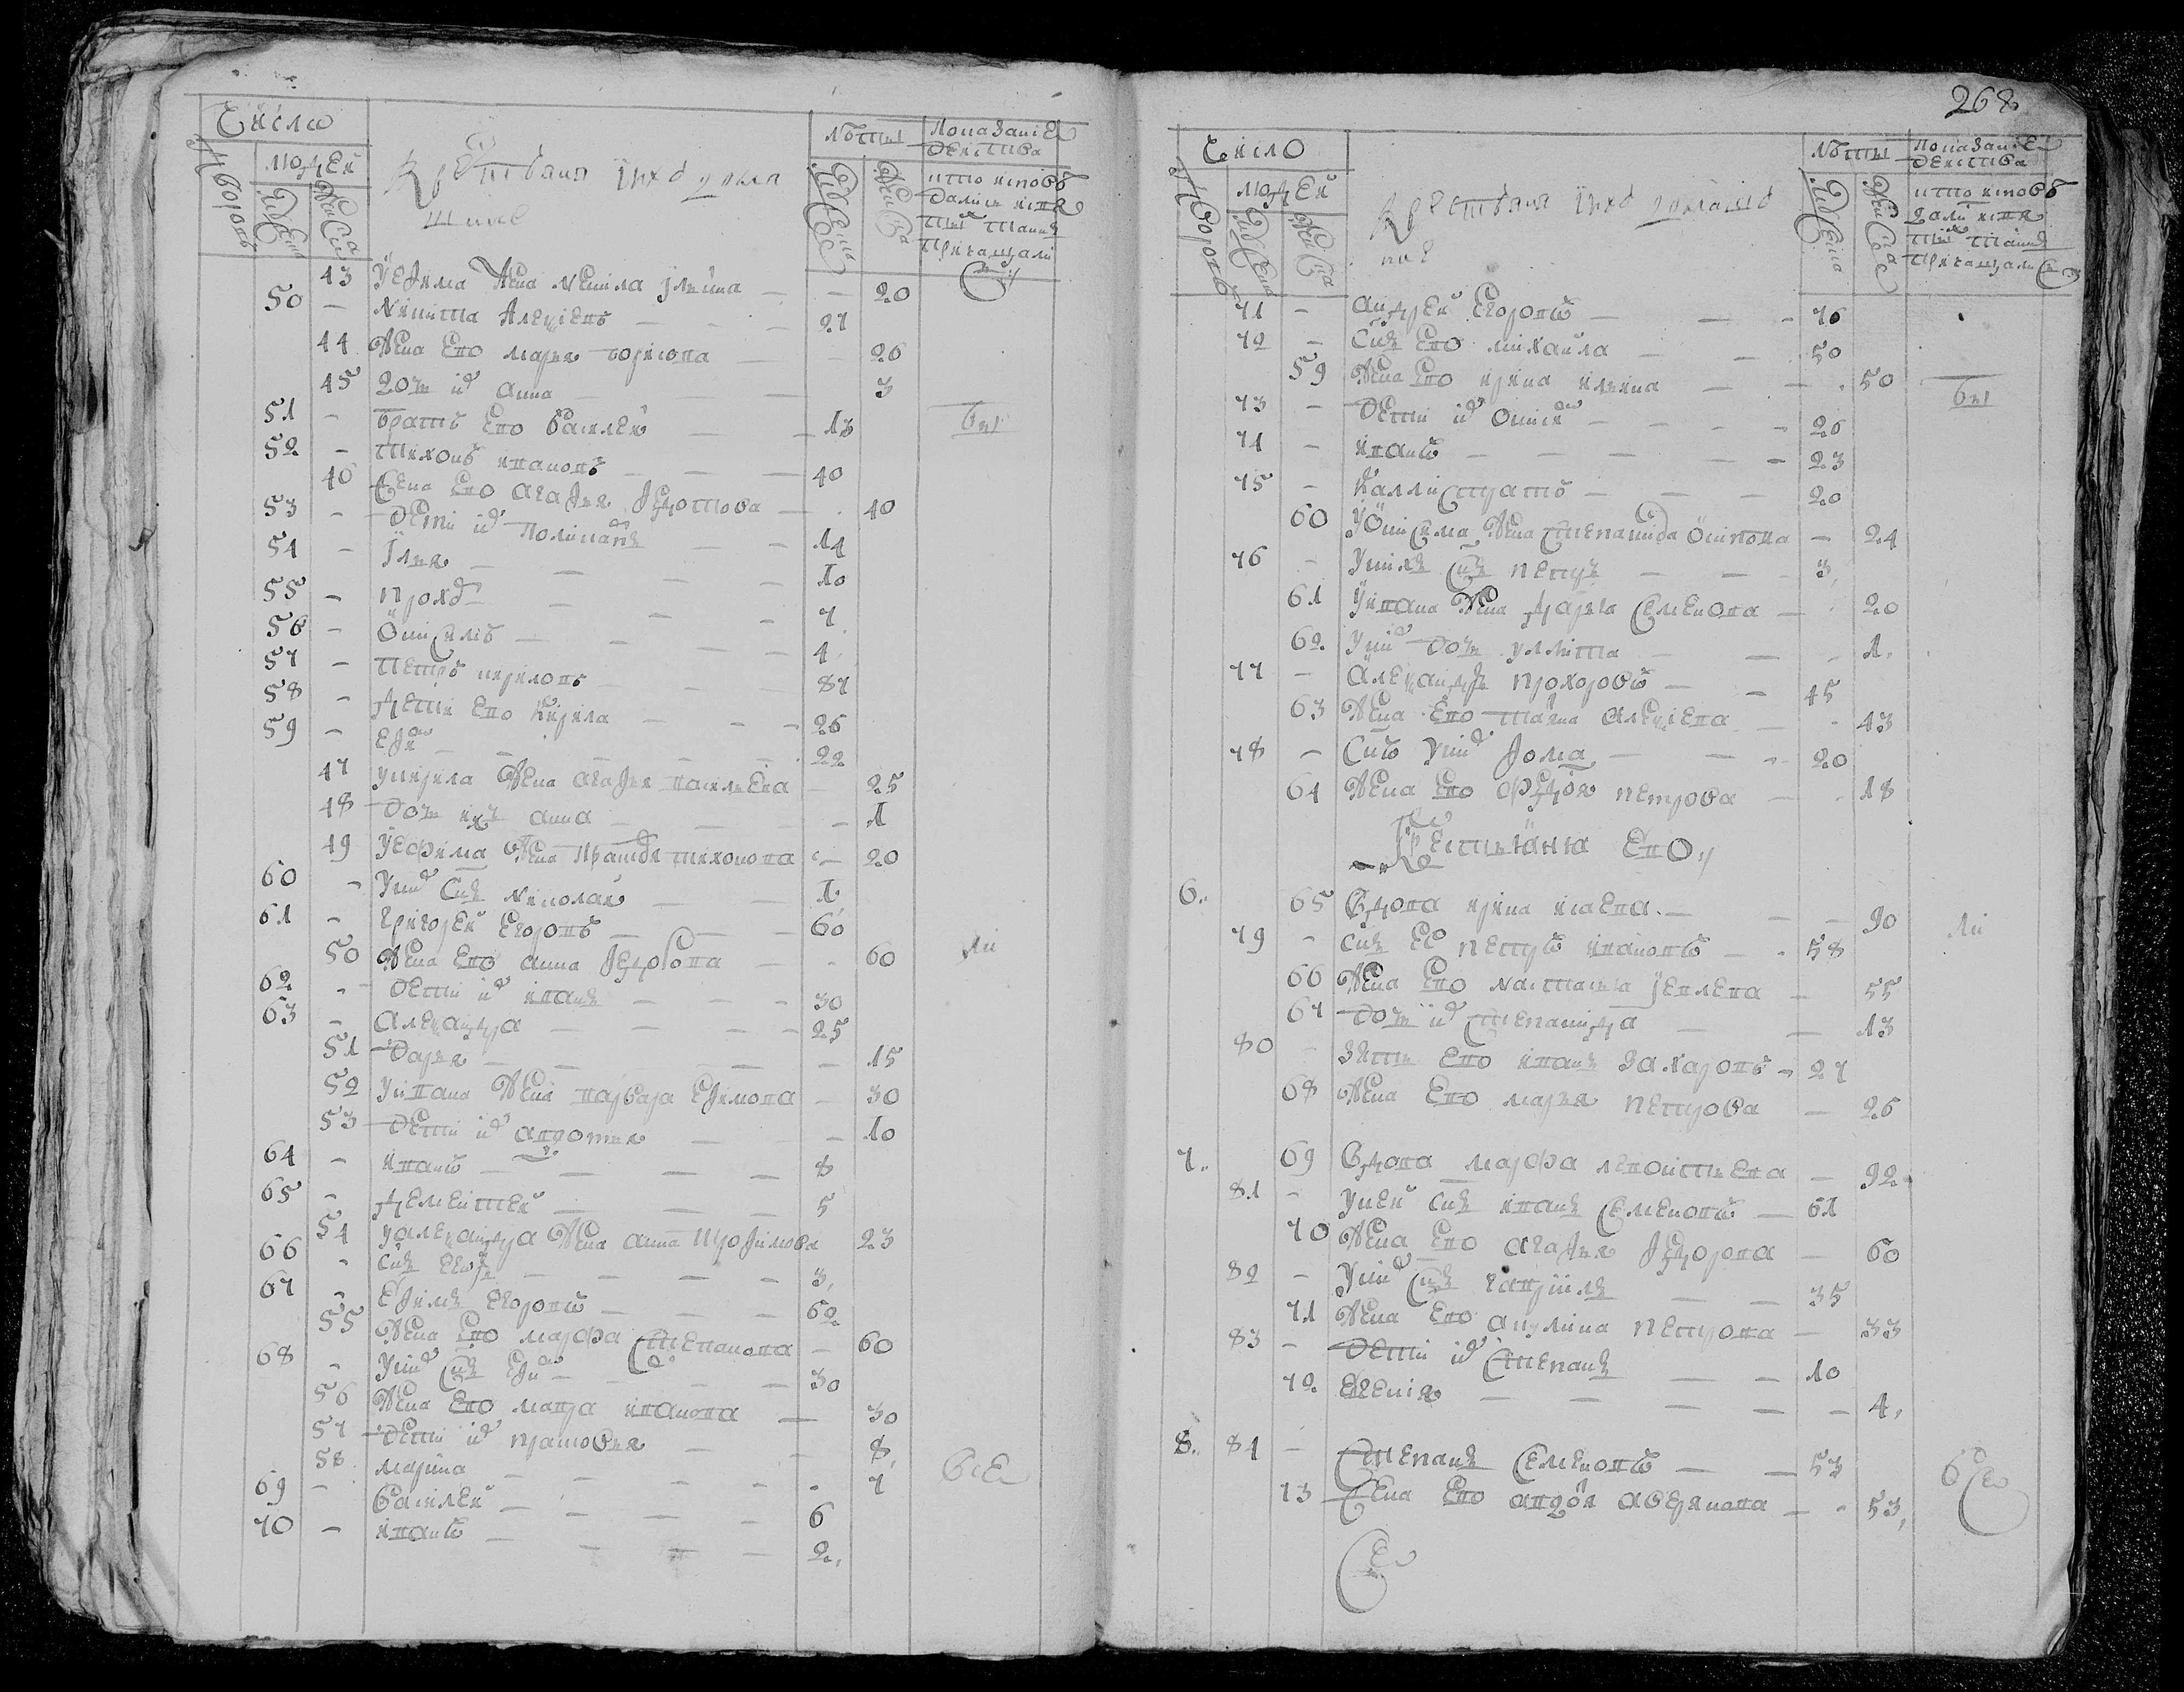 Число
Дворовъ
людей
Мужеска
Женска
Крестьяня ихъ домашние
Лѣты
Мужеска
Женска
Показание действа
кто исповѣдались и святыхъ таинъ причащались
43 У Ефима жена Ненила Ильина — — 20
50 — Никита Алексеевъ — 27
44 Жена ево Марья Борисова — 26
45 Дочь их Анна — 3
51 — Братъ ево Василей — 13
бы
52 — Тихонъ Ивановъ — 40
46 Жена ево Агафья Федотова — 40
53 — Дети их Поликарпъ — 14
54 — Илья — 10
55 — Прохор — 7
56 — Онисимъ — 4
57 — Петръ Кириловъ — 87
58 — Дети ево Кирила — 26
59 — Ефим — 22
47 У Кирила жена Агафья Васильева — 25
48 Дочь ихъ Анна — 1
49 У Ефима жена Праскофья Тихонова — 20
60 — У них сынъ Николай — 1
61 — Григорей Егоровъ — 60
50 Жена ево Анна Федорова — 60
ли
62 — Дети их Иванъ — 30
63 — Александра — 25
51 Дарья — 15
52 У Ивана жена Варвара Ефимова — 30
53 Дети их Авдотья — 10
64 — Иванъ — 8
65 — Дементей — 5
54 У Александра жена Анна Трофимова 23
66 — Сынъ Егоръ — 3
67 — Ефимъ Егоровъ — 62
55 Жена ево Марфа Степанова — 60
68 — У них сынъ Ефим — 30
56 Жена ево Мавра Иванова — 30
57 Дети их Прасковья — 8
58 Марина — 7
все
69 — Василей — 6
70 — Иванъ — 2
268
Число
Дворовъ
людей
Мужеска
Женска
Крестьяня ихъ домашние
Лѣты
Мужеска
Женска
Показание действа
кто исповѣдались и святыхъ таинъ причащались
71 — Андрей Егоровъ — 76
72 — Сынъ ево Михайла — 50
59 Жена ево Ирина Ильина — 50
бы
73 — Дети их Онисим — 26
74 — Иванъ — 23
75 — Каллистратъ — 20
60 У Онисима жена Степанида Осипова — 24
76 — У нихъ сынъ Петръ — 3
61 У Ивана жена Дарья Семенова — 20
62 У них дочь Уллита — 1
77 — Александръ Прохоровъ — 45
63 Жена ево Татиана Алексиева — 43
78 — Сынъ у них Фома — 20
64 Жена ево Федора Петрова — 18
Крестьяня ево
6. 65 Вдова Ирина Исаева — 90
ли
79 — Сынъ ее Петръ Ивановъ — 58
66 Жена ево Настасья Иевлева — 55
67 Дочь их Степанида — 13
80 — Зять ево Иванъ Захаровъ — 27
68 Жена ево Марья Петрова — 26
7. 69 Вдова Марфа Леонтьева — 92
81 — У ней сынъ Иванъ Семеновъ — 61
70 Жена ево Агафья Федорова — 60
82 — У них сынъ Гавриилъ — 35
71 Жена ево Акулина Петрова — 33
83 — Дети их Степанъ — 10
72 Евгения — 4
8. 84 — Степанъ Семеновъ — 53
все
73 Жена ево Авдотья Аверянова — 53